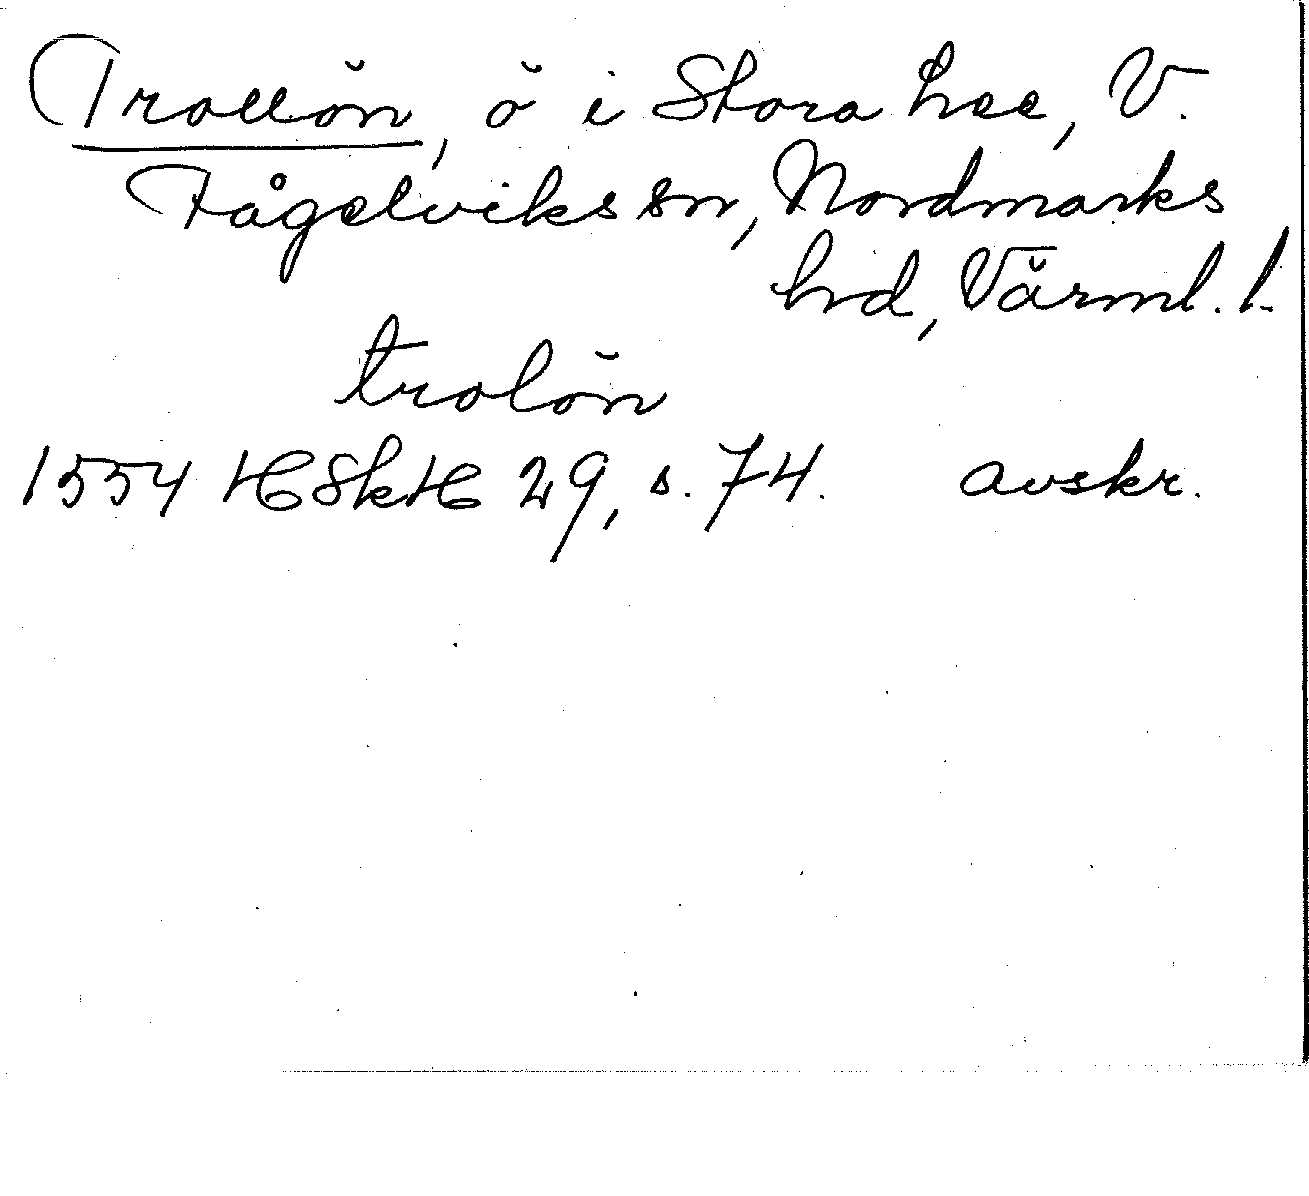 Trollön, ö i Stora Lee, V.
Fågelviks sn, Nordmarks
hd, Värml. l.
trolön
1554 HSkH 29, s. 74. avskr.